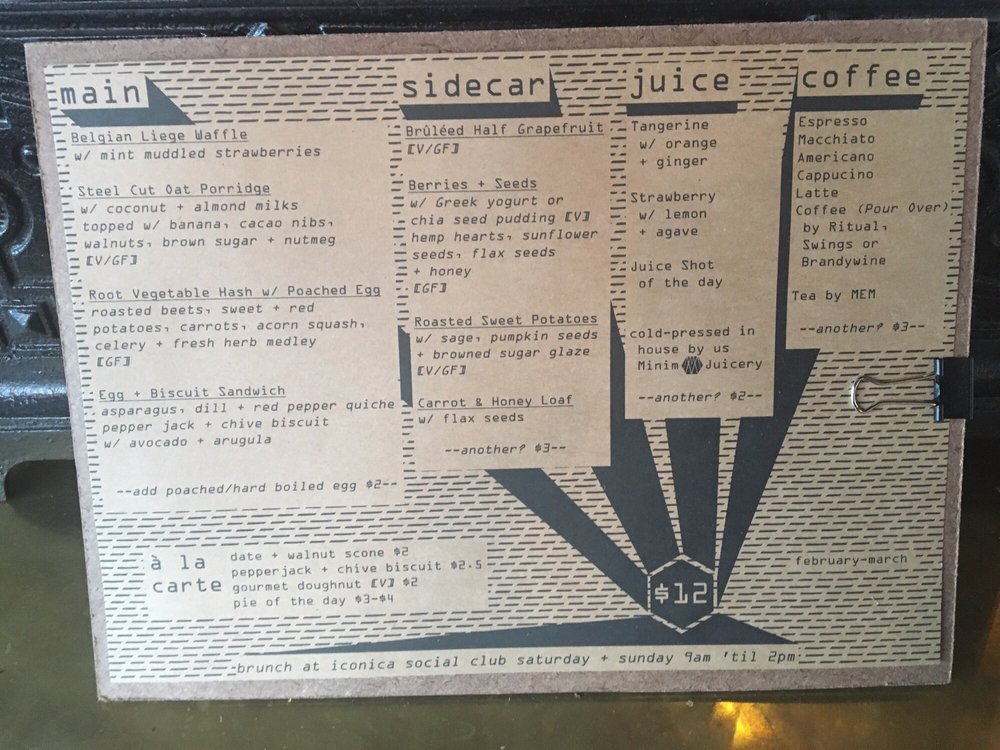 main
Belgian Liege Waffle
w/ mint muddled strawberries
Steel Cut Oat Porridge
w/ coconut + almond milks
topped w/ banana, cacao nibs,
walnuts, brown sugar + nutmeg
[V/GF]
Root Vegetable Hash w/ Poached Egg
roasted beets, sweet + red
potatoes, carrots, acorn squash,
celery + fresh herb medley
[GF]
Egg + Biscuit Sandwich
asparagus, dill + red pepper quiche
pepper jack + chive biscuit
w/ avocado + arugula
--add poached/hard boiled egg $2--
sidecar
Brûléed Half Grapefruit
[V/GF]
Berries + Seeds
w/ Greek yogurt or
chia seed pudding [V]
hemp hearts, sunflower
seeds, flax seeds
+ honey
[GF]
Roasted Sweet Potatoes
w/ sage, pumpkin seeds
+ browned sugar glaze
[V/GF]
Carrot & Honey Loaf
w/ flax seeds
--another? $3--
juice
Tangerine
w/ orange
+ ginger
Strawberry
w/ lemon
+ agave
Juice Shot
of the day
cold-pressed in
house by us
Minim Juicery
--another? $2--
coffee
Espresso
Macchiato
Americano
Cappucino
Latte
Coffee (Pour Over)
by Ritual,
Swings or
Brandywine
Tea by MEM
--another? $3--
à la
carte
date + walnut scone $2
pepperjack + chive biscuit $2.5
gourmet doughnut [V] $2
pie of the day $3-$4
$12
february-march
-brunch at iconica social club saturday + sunday 9am 'til 2pm-